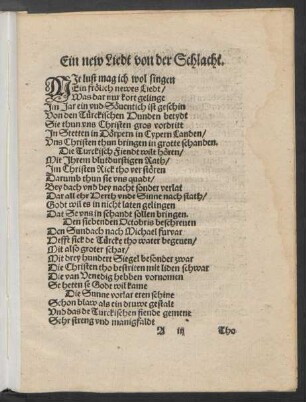 Ein new Liedt von der Schlacht.
MIt lust mag ich wol singen
Ein frölich newes Liedt /
Was dar nu kort gelinge
Im Jar ein vnd Söuentich ist geschin
Von den Türckischen Hunden betydt
Sie thun vns Christen gros vordriet
In Stetten in Dörpern in Cypern Landen /
Vns Christen thun bringen in grotte schanden.
Die Türckisch Fiendt wilt hören /
Mit Jhrem blutdurstigen Rath /
Im Christen Rick tho verstören
Darumb thun sie vns quadt /
Bey dach vnd bey nacht sonder verlat
Dar all ehr Herth vnde Sinne nach stath /
Godt wil es in nicht laten gelingen
Dat Se vns in schandt sollen bringen.
Den siebenden Octobris beschreuen
Den Sundach nach Michael furwar
Hefft sick de Türcke tho water begeuen /
Mit also groter schar /
Mit drey hundert Siegel besonder zwar
Die Christen tho bestriten mit liden schwar
Die van Venedig hebben vornomen
Se heten se Gode wilkame
Die Sunne vorlat eren schine
Schon blaw als ein druwe gestalt
Vnd das de Turckischen fiende gemene
Sehr streng vnd manigfaldt
A iij Tho